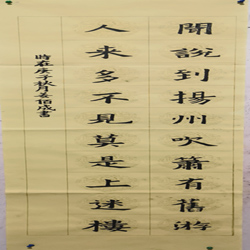 聞說到揚州吹簫有舊游
人來多不見莫是上迷樓
時在庚子秋月姜佰成書